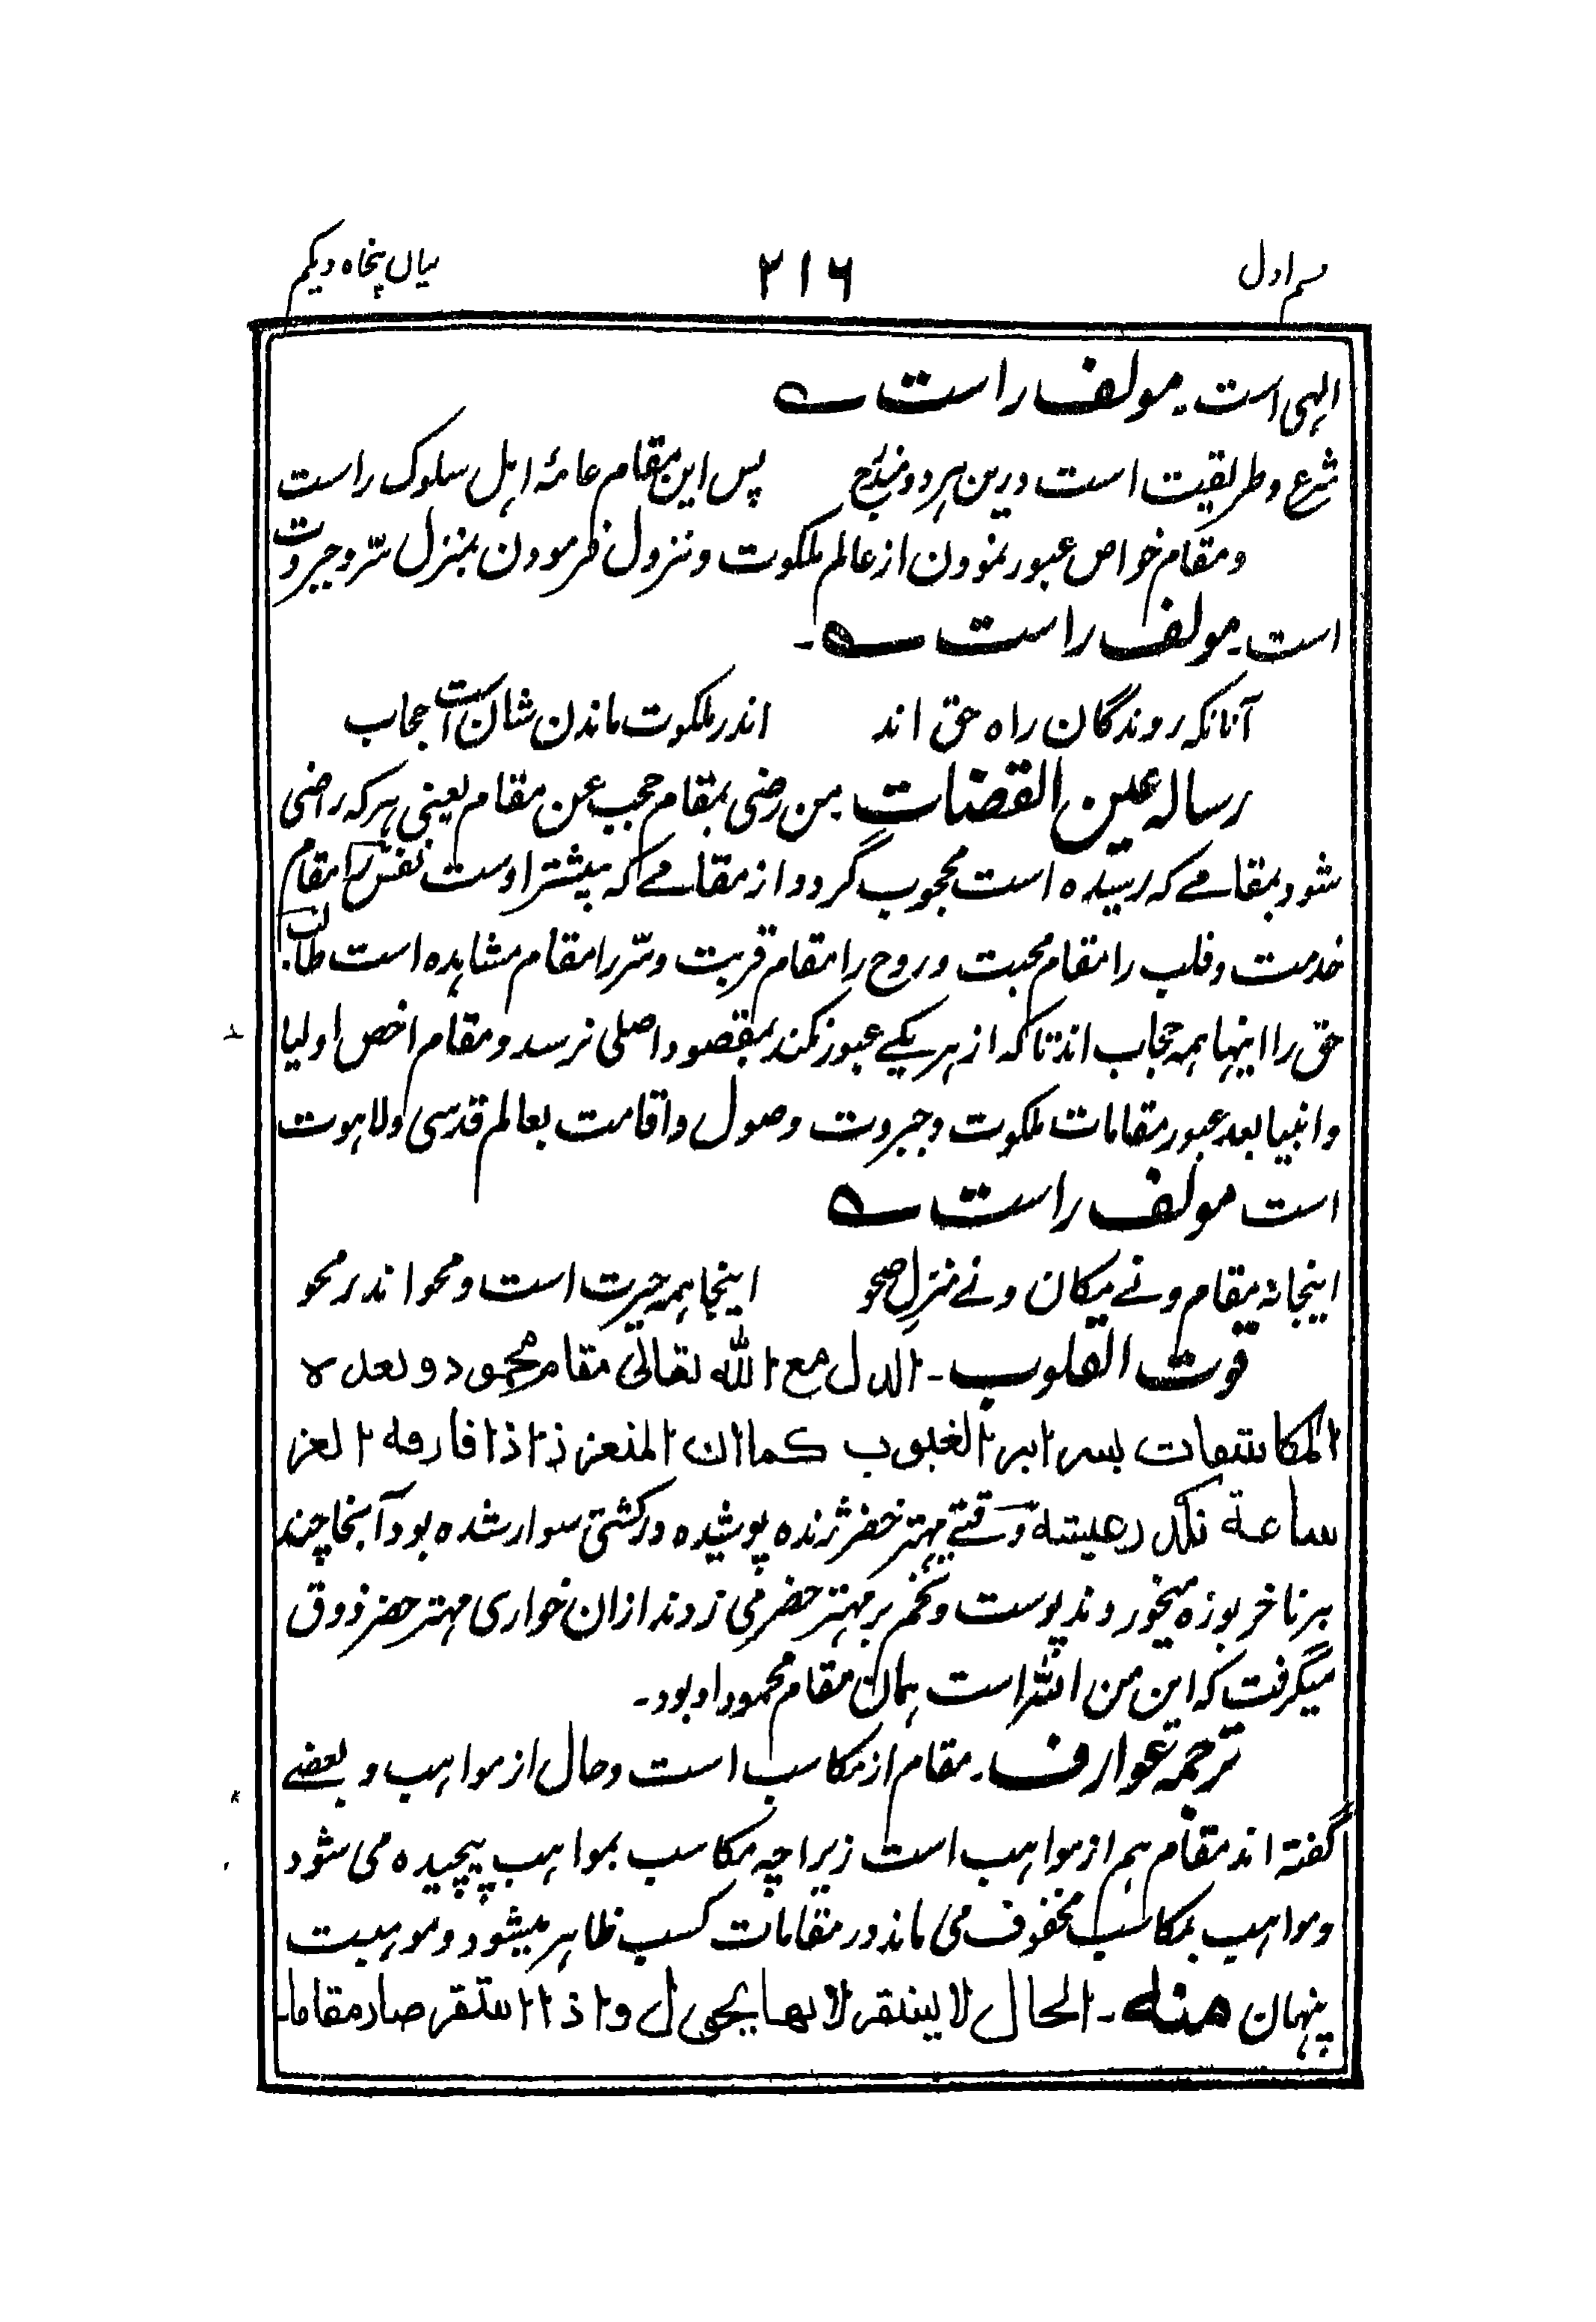 قسم اول ۲۱۶ بیان پنجاه و یکم
الہی است۔ مولف راست ے
شرع و طریقت است درین ہر دو مندرج پس این مقام عامۂ اہل سلوک راست
و مقام خواص عبور نمودن از عالم ملکوت و نزول فرمودن بمنزل سرّ و جبروت
است۔ مولف راست ے۔
آنانکہ روندگان راہ حق اند اندر ملکوت ماندن شان است حجاب
رسالہ عین القضات من رضی بمقام حجب عن مقام یعنی ہر کہ راضی
شود بمقامے کہ رسیدہ است محجوب گردد از مقامے کہ پیشتر اوست نفس را مقام
خدمت و قلب را مقام محبت و روح را مقام قربت و سرّ را مقام مشاہدہ است طالب
حق را اینہا ہمہ حجاب اند تا کہ از ہر یکے عبور نکند بمقصود اصلی نرسد و مقام اخص اولیا
و انبیا بعد عبور مقامات ملکوت و جبروت وصول و اقامت بعالم قدسی و لاہوت
است مولف راست ے
اینجا نہ مقام و نے مکان و نے منزل صحو اینجا ہمہ حیرت است و محو اندر محو
قوت القلوب۔ الدل مع اللہ تعالی مقام محمود و بعدہ
المکاشفات بسرایر الغیوب کما ان المتعزز اذا فارقہ العز
ساعة نکد عیشہ وقتے مہتر خضر ژندہ پوشیدہ در کشتی سوار شدہ بود آنجا چند
برنا خربوزہ میخوردند پوست و تخم بر مہتر خضر می زدند ازان خواری مہتر خضر ذوق
میگرفت کہ این من اللہ است ہمان مقام محمود او بود۔
ترجمہ عوارف۔ مقام از مکاسب است و حال از مواہب و بعضے
گفتہ اند مقام ہم از مواہب است زیراچہ مکاسب بمواہب پیچیدہ می شود
و مواہب بمکاسب محفوف می ماند در مقامات کسب ظاہر میشود و موہبت
پنہان منہ۔ الحال لا یستقر لانہا یحول و اذا استقر صار مقاما۔